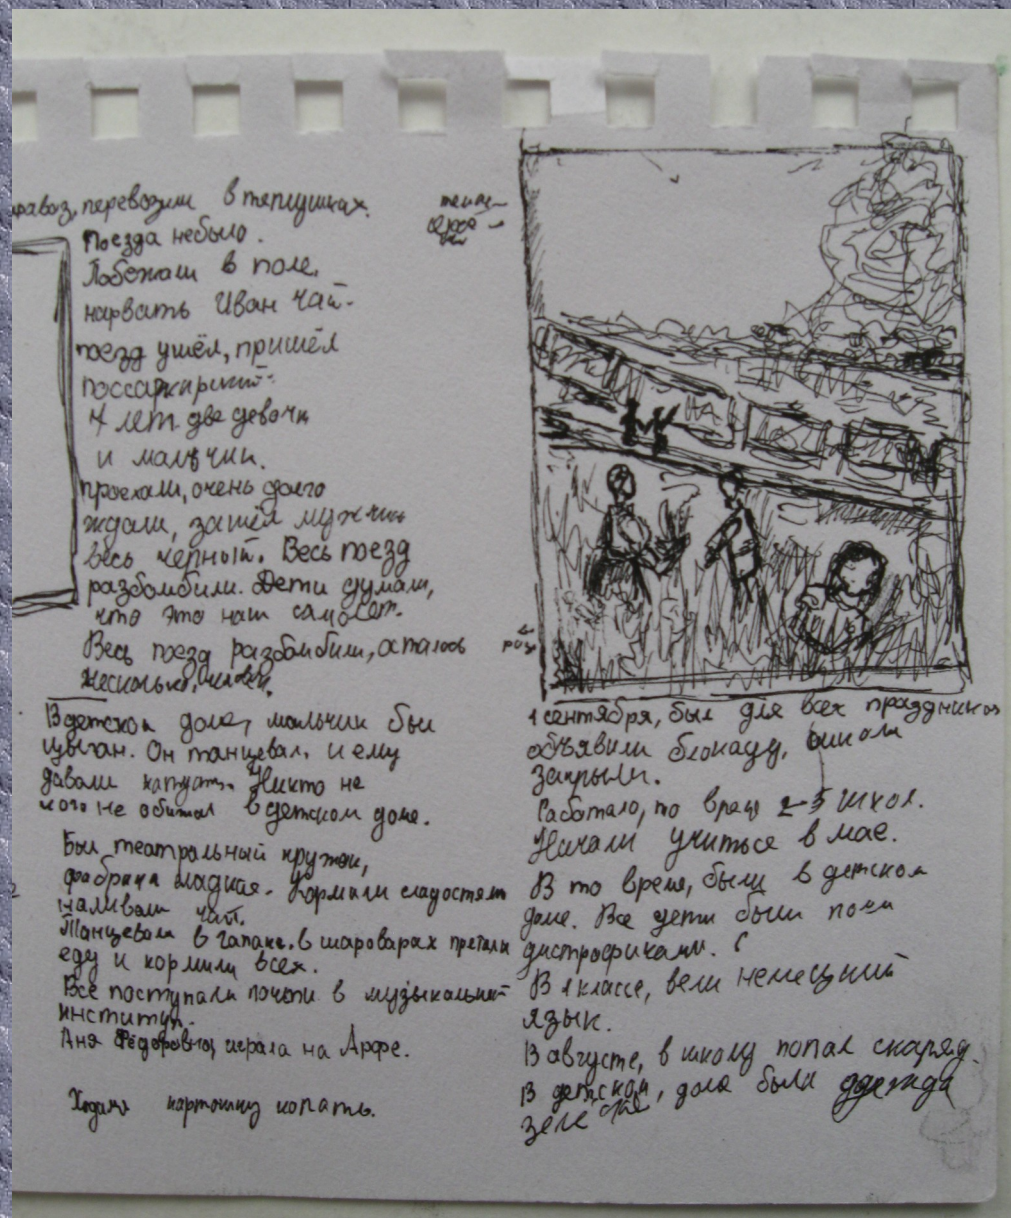 паравоз, перевозили в теплушках.
Поезда небыло.
Побежали в поле,
нарвать Иван чай-
поезд ушёл, пришёл
поссажирский-
4 лет две девочки
и мальчики.
проехали, очень долго
ждали, зашёл мужчина
весь черный. Весь поезд
разбомбили. Дети думали,
что это наш самолет.
Весь поезд разбомбили, осталось
несколько, человек.
В детском доме, мальчик был
цыган. Он танцевал, и ему
давали капусту. Никто не
кого не обижал в детском доме.
Был театральный кружок,
фабрика сладкая. Кормили сладостями
наливали чай.
Танцевали в гапаке, в шароварах прятали
еду и кормили всех.
Все поступали почти в музыкальный
институт.
Аня Фёдоровна, играла на Арфе.
Ходили картошку копать.
1 сентября, был для всех праздников
объявили блокаду, школы
закрыли.
Работало, то врацу 2-5 школ.
Начали учиться в мае.
В то время, были в детском
доме. Все дети были почти
дистрофиками.
В 1 классе, вели немецкий
язык.
В августе, в школу попал снаряд.
В детском, доме была одежда